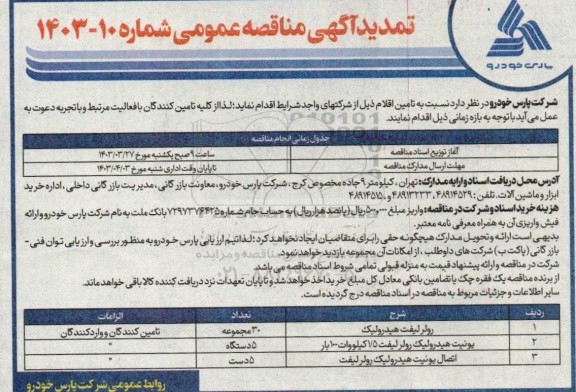 تمدید آگهی مناقصه عمومی شماره ۱۰-۱۴۰۳
پارس خودرو
شرکت پارس خودرو در نظر دارد نسبت به تامین اقلام ذیل از شرکتهای واجد شرایط اقدام نماید؛ لذا از کلیه تامین کنندگان با فعالیت مرتبط و با تجربه دعوت به
عمل می آید با توجه به بازه زمانی ذیل اقدام نمایند.
جدول زمانی انجام مناقصه
آغاز توزیع اسناد مناقصه ساعت ۹ صبح یکشنبه مورخ ۱۴۰۳/۰۳/۲۷
مهلت ارسال مدارک مناقصه تا پایان وقت اداری شنبه مورخ ۱۴۰۳/۰۴/۰۲
آدرس محل دریافت اسناد و ارایه مدارک: تهران، کیلومتر ۹ جاده مخصوص کرج، شرکت پارس خودرو، معاونت بازرگانی، مدیریت بازرگانی داخلی، اداره خرید
ابزار و ماشین آلات. تلفن: ۴۸۹۱۴۵۲۹ ، ۴۸۹۱۳۲۳۳ و ۴۸۹۱۴۵۱۵
هزینه خرید اسناد و شرکت در مناقصه: واریز مبلغ ۵۰۰،۰۰۰ ریال (پانصد هزار ریال) به حساب جام شماره ۷۲۹۷۳۷۶۴۲۵ بانک ملت به نام شرکت پارس خودرو و ارائه
فیش واریزی آن به همراه معرفی نامه معتبر.
بدیهی است ارائه و تحویل مدارک هیچگونه حقی را برای متقاضیان ایجاد نخواهد کرد؛ لذا تیم ارزیابی پارس خودرو به منظور بررسی و ارزیابی توان فنی-
بازرگانی (پاکت ب) شرکت های داوطلب، از امکانات آن مجموعه بازدید خواهد نمود.
شرکت در مناقصه و ارائه پیشنهاد قیمت به منزله قبولی تمامی شروط اسناد مناقصه می باشد
از برنده مناقصه یک فقره چک یا تضامین بانکی معادل کل مبلغ خرید اخذ خواهد شد و تا پایان تعهدات نزد دریافت کننده کالا باقی خواهد ماند.
سایر اطلاعات و جزئیات مربوط به مناقصه در اسناد مناقصه درج گردیده است.
ردیف شرح تعداد الزامات
۱ رولر لیفت هیدرولیک ۳۰ مجموعه تامین کنندگان و وارد کنندگان
۲ یونیت هیدرولیک رولر لیفت ۱/۵ کیلووات ۱۰۰ بار ۵ دستگاه "
۳ اتصال یونیت هیدرولیک رولر لیفت ۵ دست "
روابط عمومی شرکت پارس خودرو